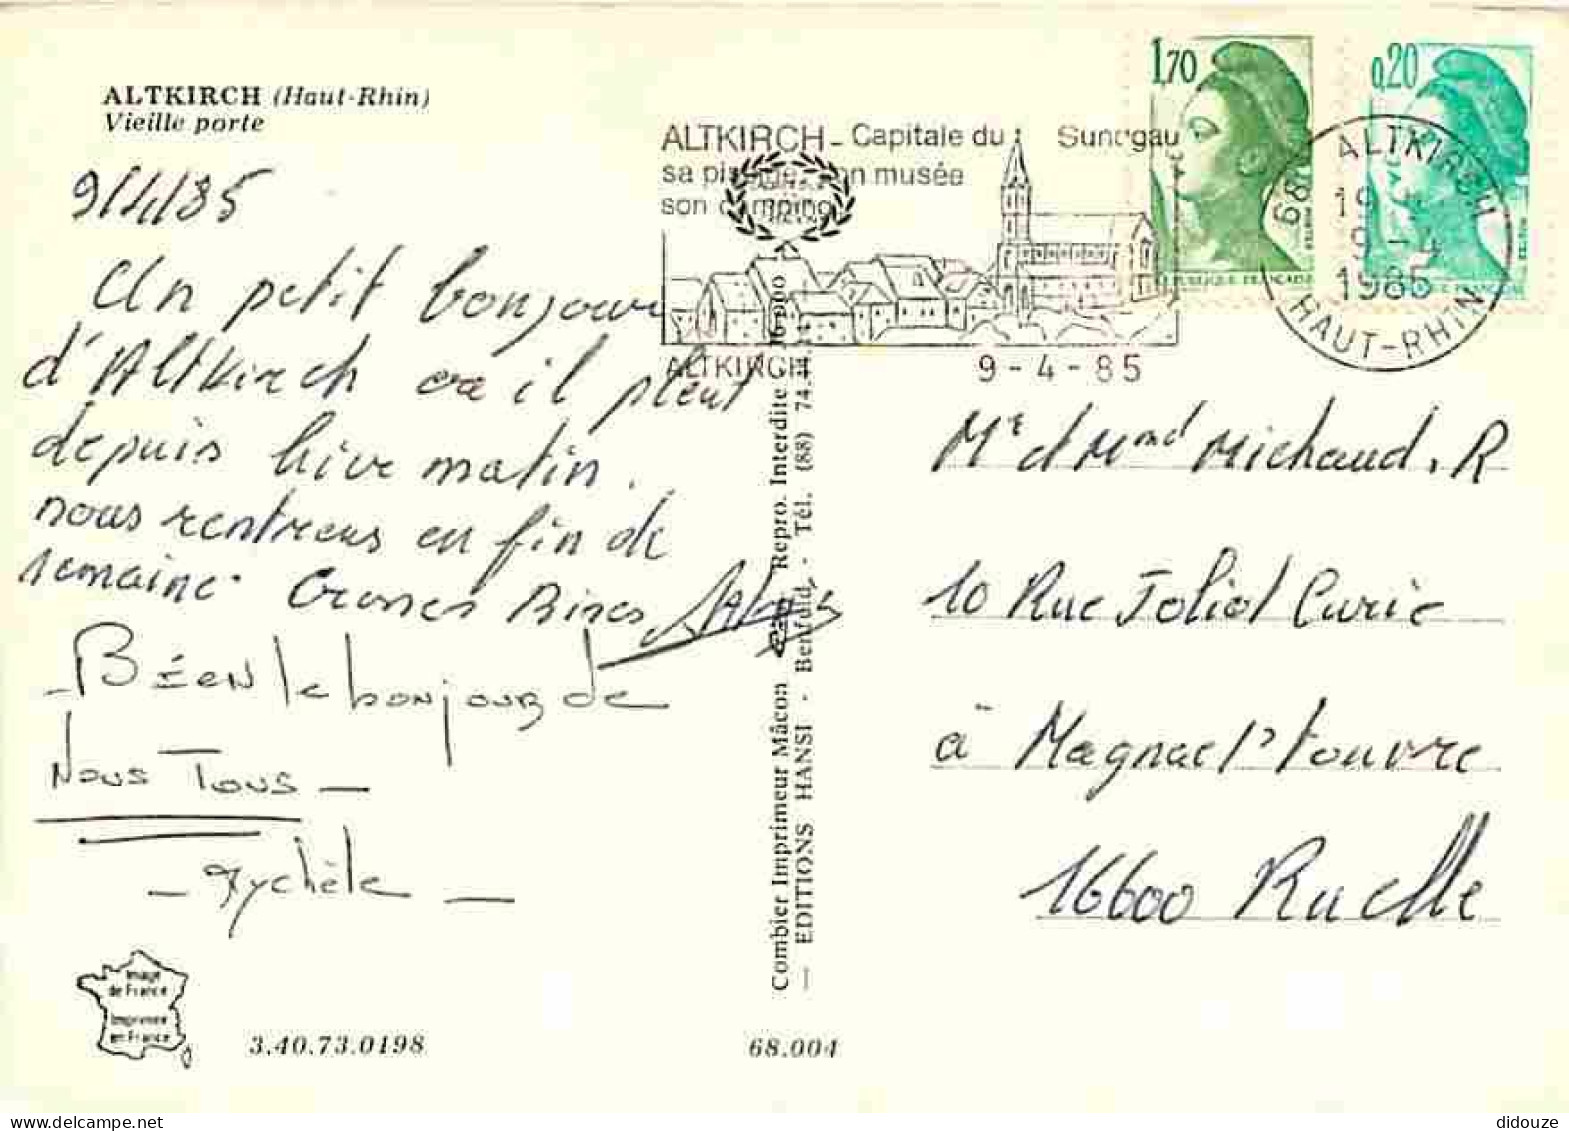 ALTKIRCH (Haut-Rhin)
Vieille porte
9/4/85
Un petit bonjour
d'Altkirch ou il pleut
depuis hive matin.
nous rentrons en fin de
semaine. Grosses Bises
Béen le bonjour de
Nous Tous —
— Mychèle —
Image
de France
Imprimée
en France
3.40.73.0198
68.004
Combier Imprimeur Mâcon Repro. Interdite
— EDITIONS HANSI - Benfeld - Tél. (88) 74.
ALTKIRCH - Capitale du Sundgau
sa piscine, son musée
son camping
ALTKIRCH 9-4-85
1,70
0,20
REPUBLIQUE FRANÇAISE
68 ALTKIRCH
19 H
9-4
1985
HAUT-RHIN
Mr et Mme Michaud. R
10 Rue Joliot Curie
à Magnac s/ touvre
16600 Ruelle
didouze